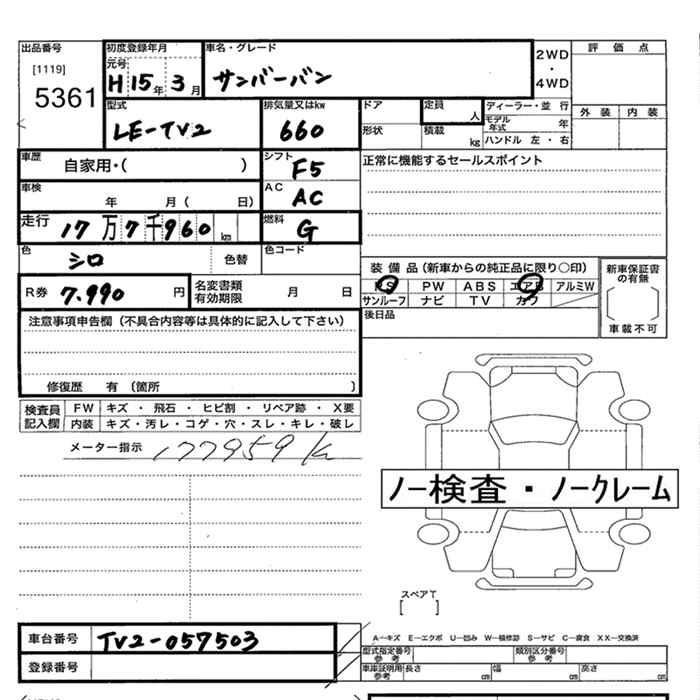 出品番号 初度登録年月 車名・グレード 2WD・4WD 評価点
[1119] 元号
5361 H 15年 3月 サンバーバン
型式 排気量又はkw ドア 定員 人 ディーラー・並行 外装 内装
LE-TV2 660 形状 積載 kg モデル年式 年
ハンドル 左・右
車歴 自家用・( ) シフト F5 正常に機能するセールスポイント
車検 年 月( 日) AC AC
走行 17万7千960 km 燃料 G
色 シロ 色替 色コード
装備品(新車からの純正品に限り○印) 新車保証書の有無
R券 7.990 円 名変書類有効期限 月 日 PS PW ABS エアB アルミW
サンルーフ ナビ TV カワ
[ ]
車載不可
注意事項申告欄(不具合内容等は具体的に記入して下さい) 後日品
修復歴 有(箇所 )
検査員記入欄 FW キズ・飛石・ヒビ割・リペア跡・X要
内装 キズ・汚レ・コゲ・穴・スレ・キレ・破レ
メーター指示 177959 K
ノー検査・ノークレーム
スペアT
[ ]
車台番号 TV2-057503 A-キズ E-エクボ U-凹み W-補修跡 S-サビ C-腐食 XX-交換済
登録番号 型式指定番号 参考 類別区分番号 参考
車庫証明用 参考 長さ cm 幅 cm 高さ cm